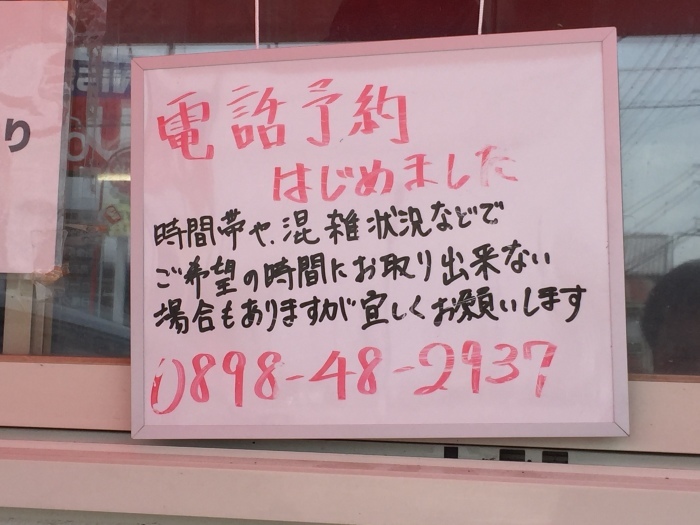 電話予約
はじめました
時間帯や、混雑状況などで
ご希望の時間にお取り出来ない
場合もありますが宜しくお願いします
0898-48-2937
り